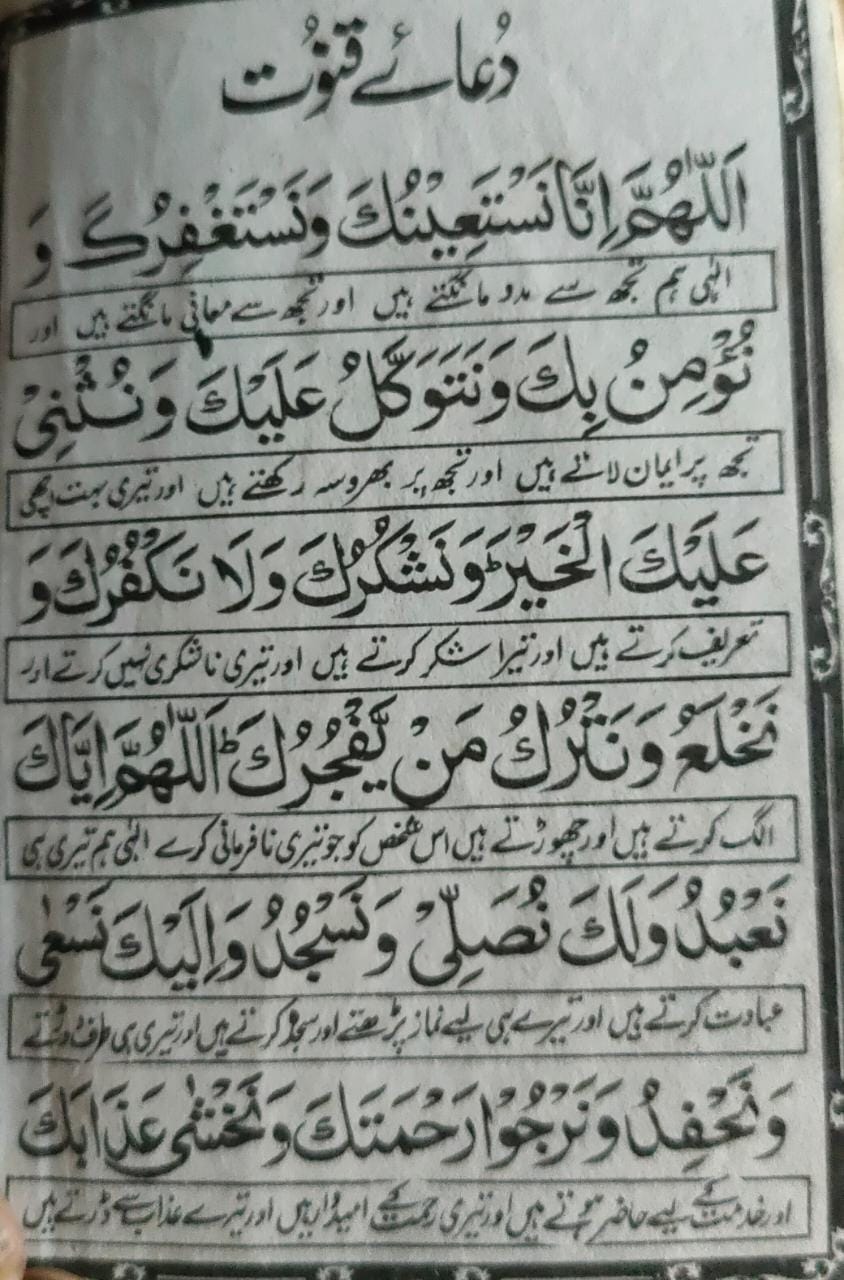 دُعائے قنوُت
اَللّٰهُمَّ اِنَّا نَسْتَعِيْنُكَ وَنَسْتَغْفِرُكَ وَ
الٰہی ہم تجھ سے مدد مانگتے ہیں اور تجھ سے معافی مانگتے ہیں اور
نُؤْمِنُ بِكَ وَنَتَوَكَّلُ عَلَيْكَ وَنُثْنِيْ
تجھ پر ایمان لاتے ہیں اور تجھ پر بھروسہ رکھتے ہیں اور تیری بہت اچھی
عَلَيْكَ الْخَيْرَ ؕ وَنَشْكُرُكَ وَلَا نَكْفُرُكَ وَ
تعریف کرتے ہیں اور تیرا شکر کرتے ہیں اور تیری ناشکری نہیں کرتے اور
نَخْلَعُ وَنَتْرُكُ مَنْ يَّفْجُرُكَ ؕ اَللّٰهُمَّ اِيَّاكَ
الگ کرتے ہیں اور چھوڑتے ہیں اس شخص کو جو تیری نافرمانی کرے الٰہی ہم تیری ہی
نَعْبُدُ وَلَكَ نُصَلِّيْ وَنَسْجُدُ وَاِلَيْكَ نَسْعٰى
عبادت کرتے ہیں اور تیرے ہی لیے نماز پڑھتے اور سجدہ کرتے ہیں اور تیری ہی طرف دوڑتے
وَنَحْفِدُ وَنَرْجُوْا رَحْمَتَكَ وَنَخْشٰى عَذَابَكَ
اور خدمت کے لیے حاضر ہوتے ہیں اور تیری رحمت کے امیدوار ہیں اور تیرے عذاب سے ڈرتے ہیں